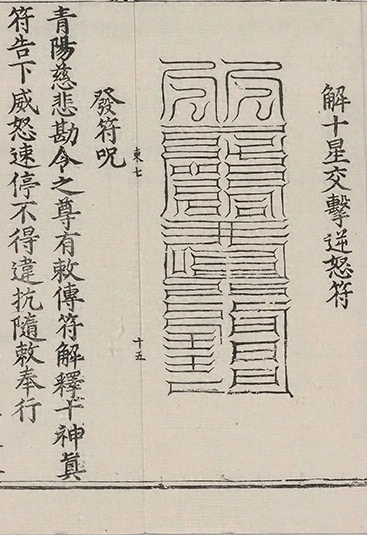 解十星交擊逆怒符
發符呪
東七
十五
青陽慈悲勘令之尊有敕傳符解釋十神眞
符告下威怒速停不得違抗隨敕奉行